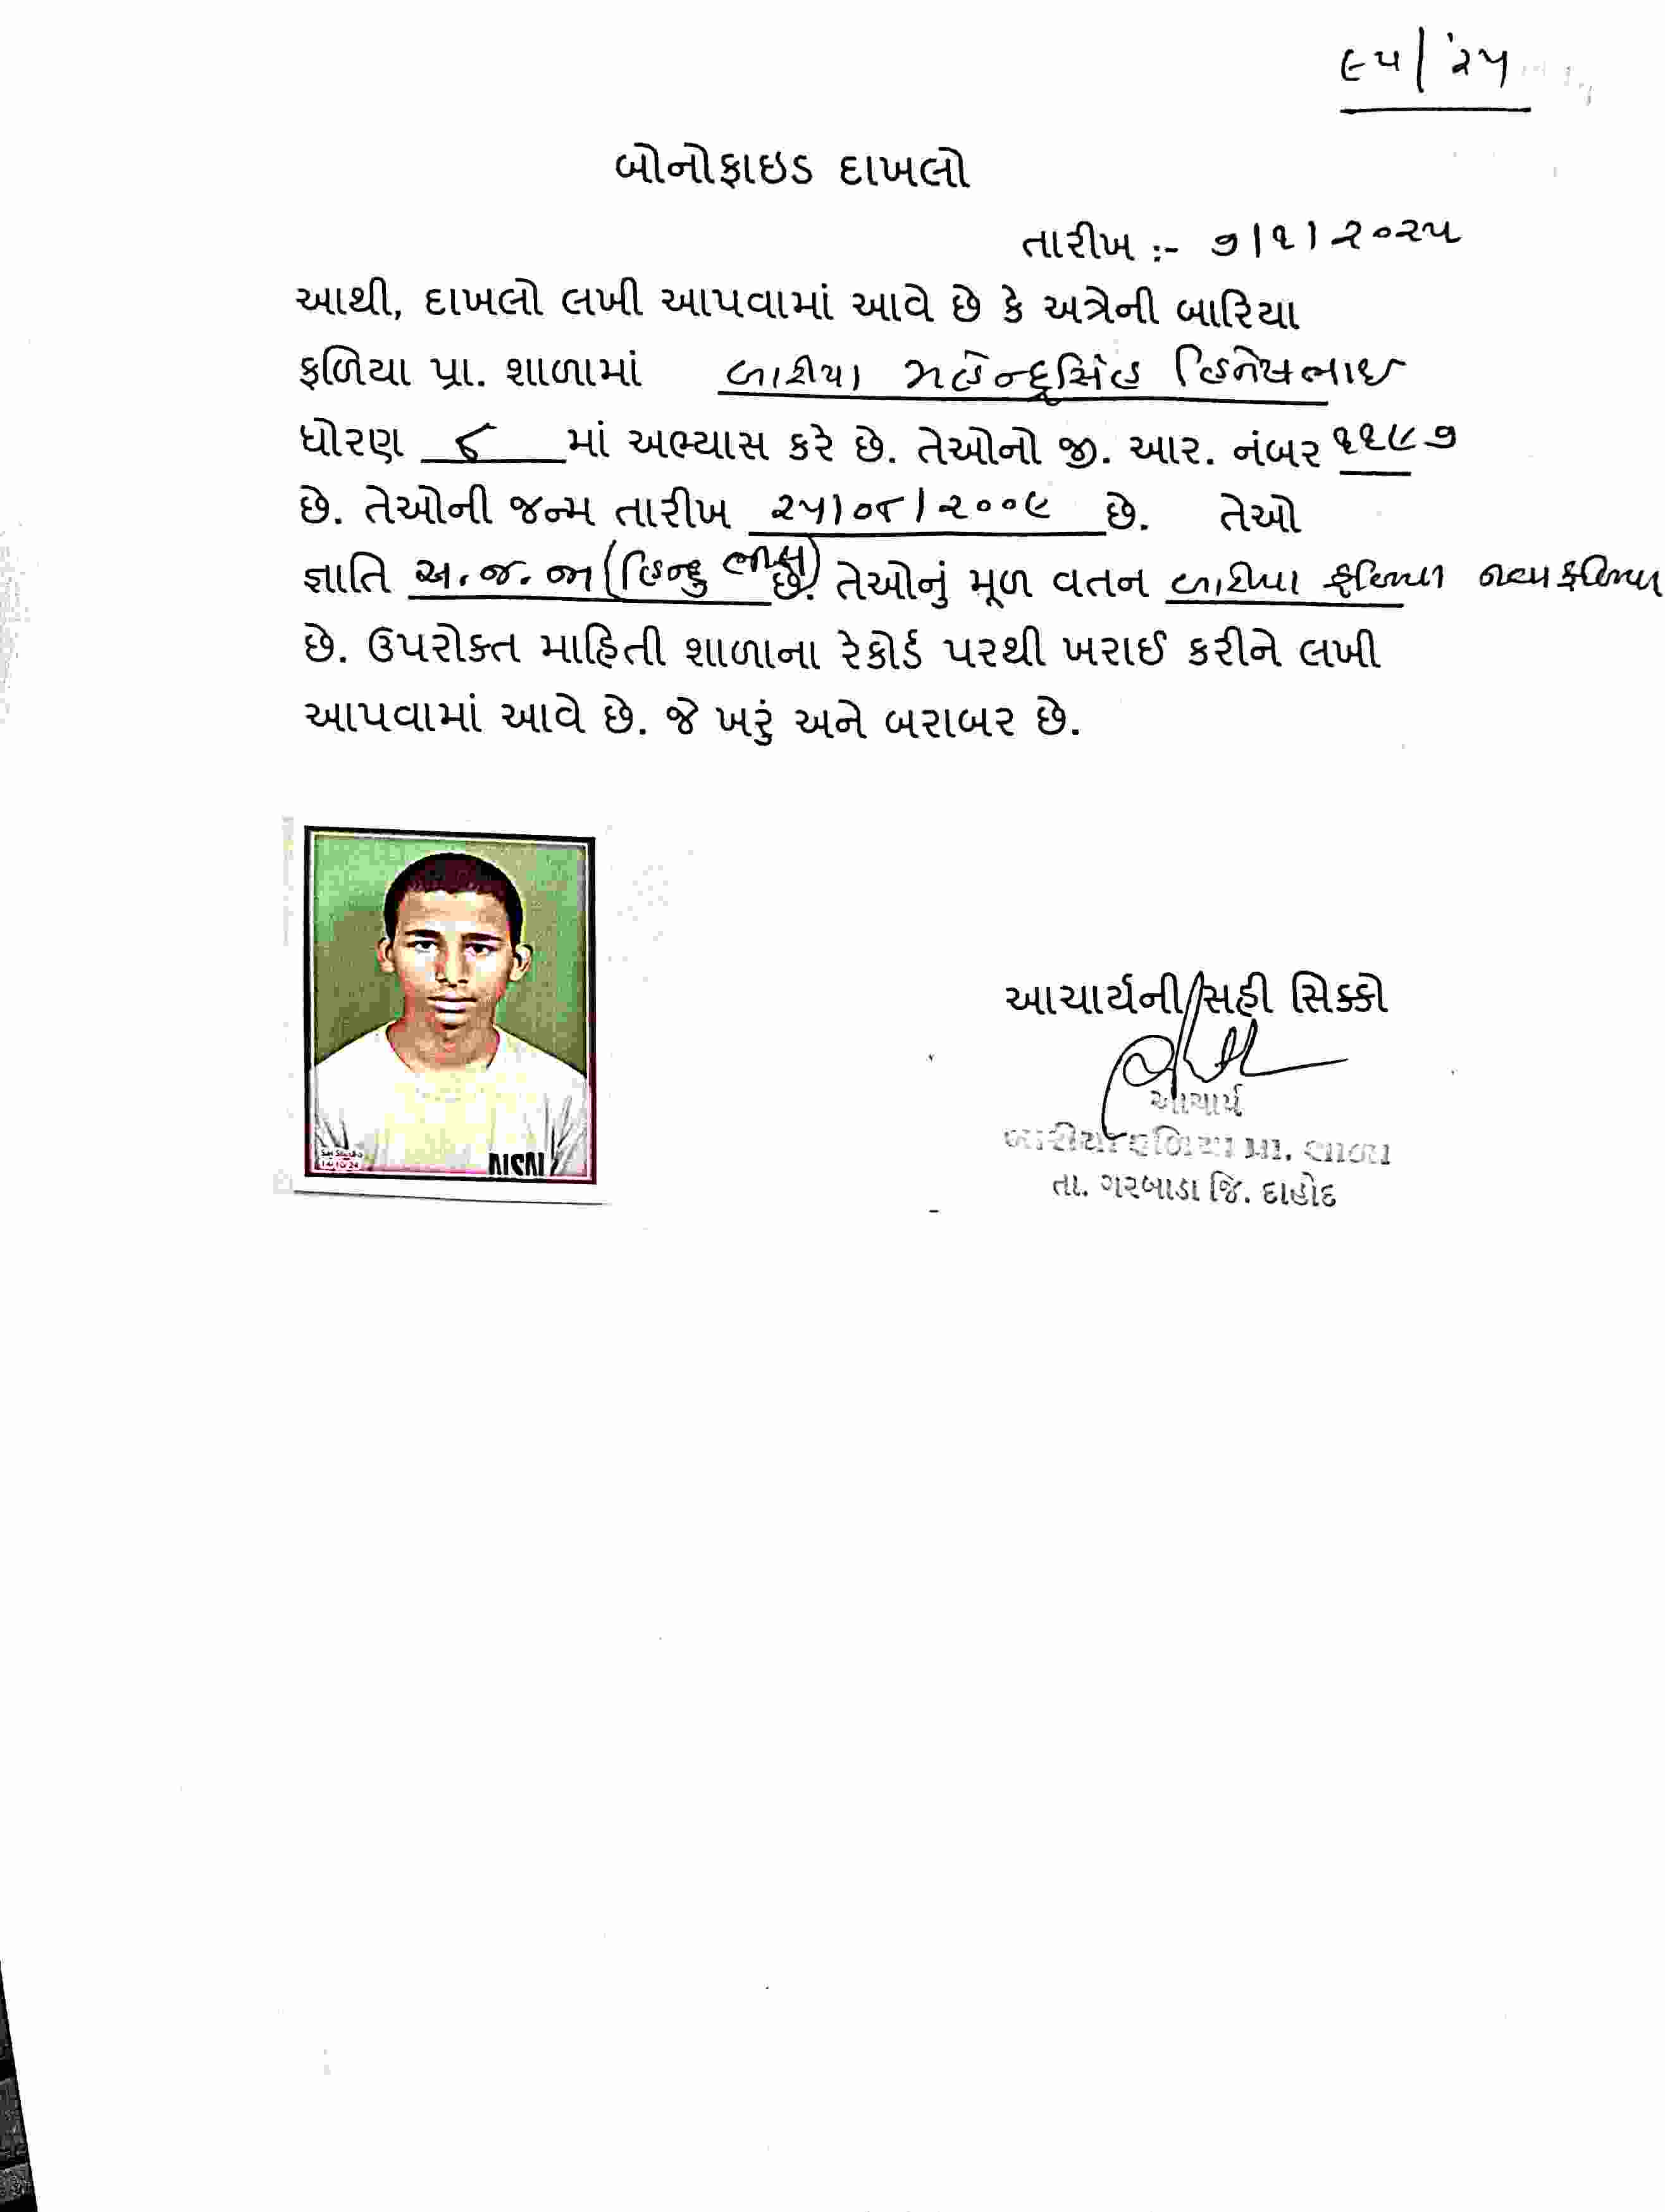 ૯૫/'૨૫
બોનોફાઇડ દાખલો
તારીખ :- ૭/૧/૨૦૨૫
આથી, દાખલો લખી આપવામાં આવે છે કે અત્રેની બારિયા
ફળિયા પ્રા. શાળામાં બારીયા મહેન્દ્રસિંહ હિનેષભાઇ
ધોરણ ૮ માં અભ્યાસ કરે છે. તેઓનો જી. આર. નંબર ૧૧૯૭
છે. તેઓની જન્મ તારીખ ૨૫/૦૮/૨૦૦૯ છે. તેઓ
જ્ઞાતિ અ.જ.જા (હિન્દુ ભીલ) છે. તેઓનું મૂળ વતન બારીયા ફળિયા ફળિયા
છે. ઉપરોક્ત માહિતી શાળાના રેકોર્ડ પરથી ખરાઈ કરીને લખી
આપવામાં આવે છે. જે ખરું અને બરાબર છે.
આચાર્યની સહી સિક્કો
આચાર્ય
બારીયા ફળિયા પ્રા. શાળા
તા. ગરબાડા જિ. દાહોદ